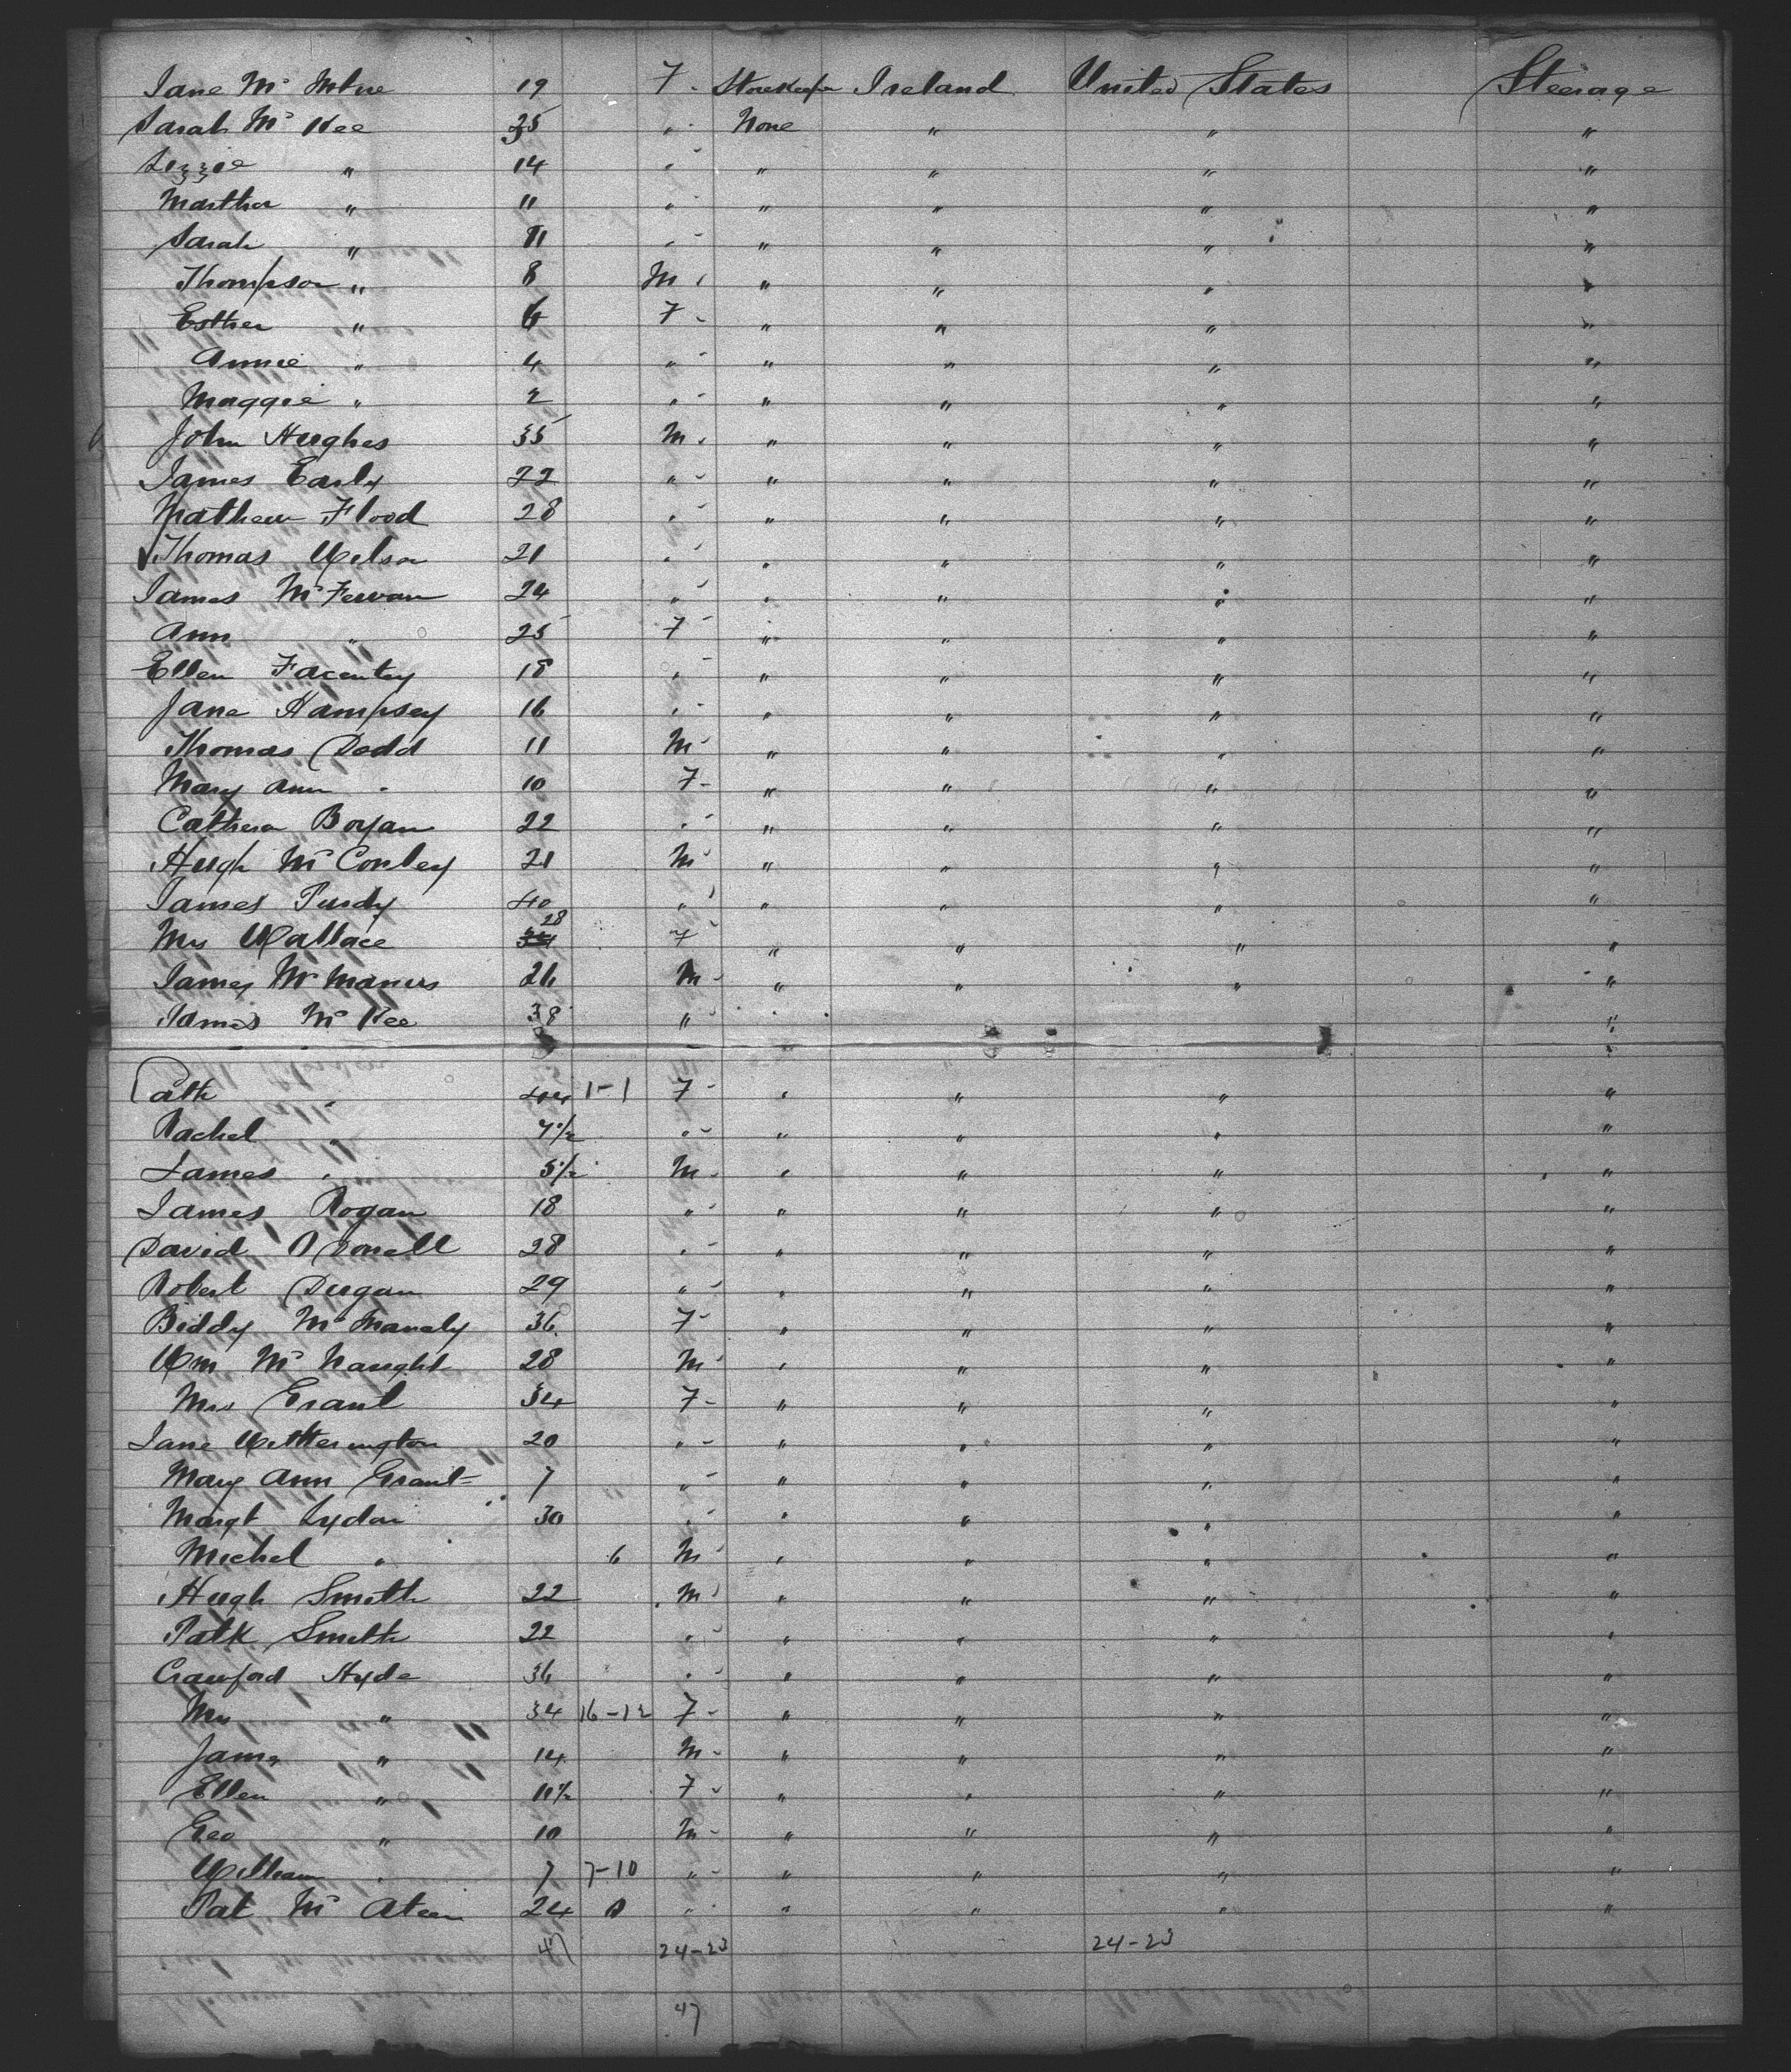 Jane Mc 19 7 - Storekeeper Ireland United States Steerage
Sarah Mc Kee 35 " None " " "
Lizzie " 14 " - " " " "
Marther " 11 " - " " " "
Sarah " 11 " - " " " "
Thompson " 8 M " " " "
Esther " 6 7 - " " " "
Annie " 4 " - " " " "
Maggie " 2 " - " " " "
John Hughes 35 M " " " "
James Early 22 " - " " " "
Mathew Flood 28 " - " " " "
Thomas Wilson 21 " - " " " "
James Mc Ferran 24 " - " " " "
Ann " 25 7 - " " " "
Ellen 18 " - " " " "
Jane Hampsey 16 " - " " " "
Thomas Dodd 11 M - " " " "
Mary Ann " 10 7 - " " " "
Cathern Boylan 22 " - " " " "
Hugh Mc Conley 21 M - " " " "
James Purdy 40 " - " " " "
Mrs Wallace 28 7 - " " " "
James Mc Maners 26 M - " " " "
James Mc Kee 38 " "
Cath " 44 1-1 7 - " " " "
Rachel " 7½ " - " " " "
James " 5½ M - " " " "
James Rogan 18 " - " " " "
David O Donell 28 " - " " " "
Robert Dugan 29 " - " " " "
Biddy Mc Manaly 36 7 - " " " "
Wm Mc Naught 28 M - " " " "
Mrs Grant 34 7 - " " " "
Jane Wetherington 20 " - " " " "
Mary Ann Grant 7 " - " " " "
Margt Lydon 30 " - " " " "
Michel " 6 M - " " " "
Hugh Smith 22 M - " " " "
Patk Smith 22 " - " " " "
Crawford Hyde 36 " - " " " "
Mrs " 34 16-12 7 - " " " "
James " 14 M - " " " "
Ellen " 11½ 7 - " " " "
Geo " 10 M - " " " "
William " 7 7-10 " - " " " "
Pat Mc Ateer 24 " - " " " "
47 24-23 24-23
47